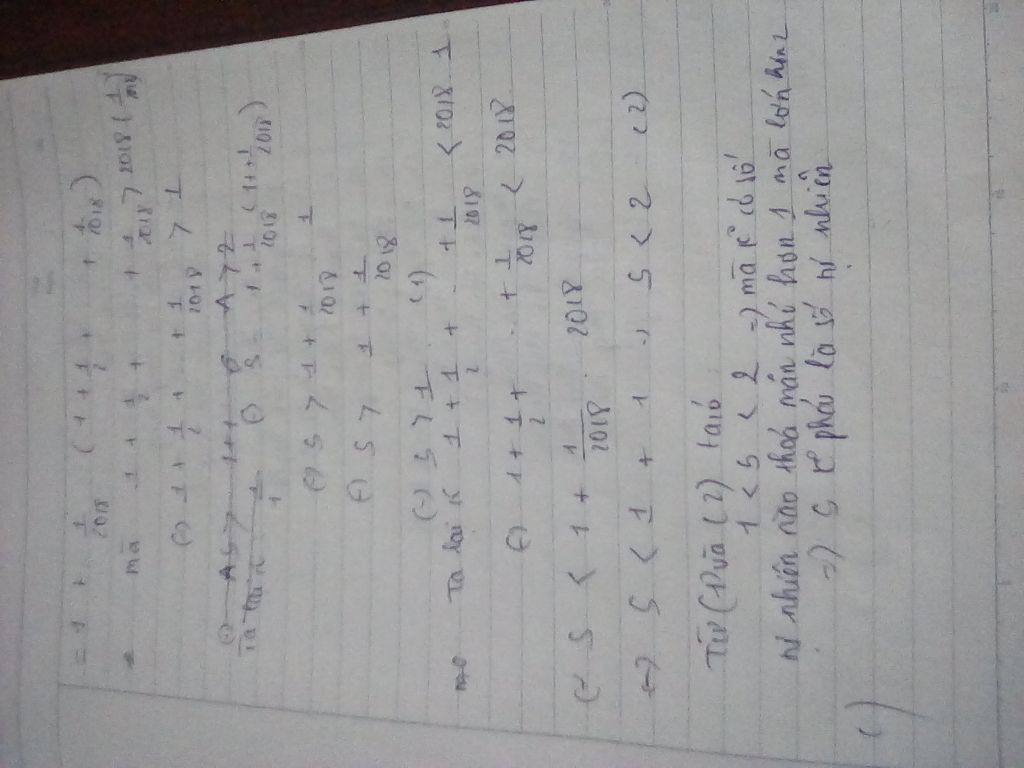 = 1 + 1/2018 (1 + 1/2 + + 1/2018)
mà 1 + 1/2 + + 1/2018 > 2018 (1/2018)
(=) 1 + 1/2 + .. + 1/2018 > 1
Ta (=) S = 1 + 1/2018 (1 + + 1/2018)
(=) S > 1 + 1/2018 1
(=) S > 1 + 1/2018
(=) S > 1 (1)
Ta lại K 1 + 1/2 + .. + 1/2018 < 2018 1
(=) 1 + 1/2 + .. + 1/2018 < 2018
(= S < 1 + 1/2018 . 2018
(=) S < 1 + 1 .. S < 2 (2)
Từ (1) và (2) ta có
1 < S < 2 => mà K có số
tự nhiên nào thoả mãn nhỏ hơn 1 mà lớn hơn 2
=> S K phải là số tự nhiên
c)